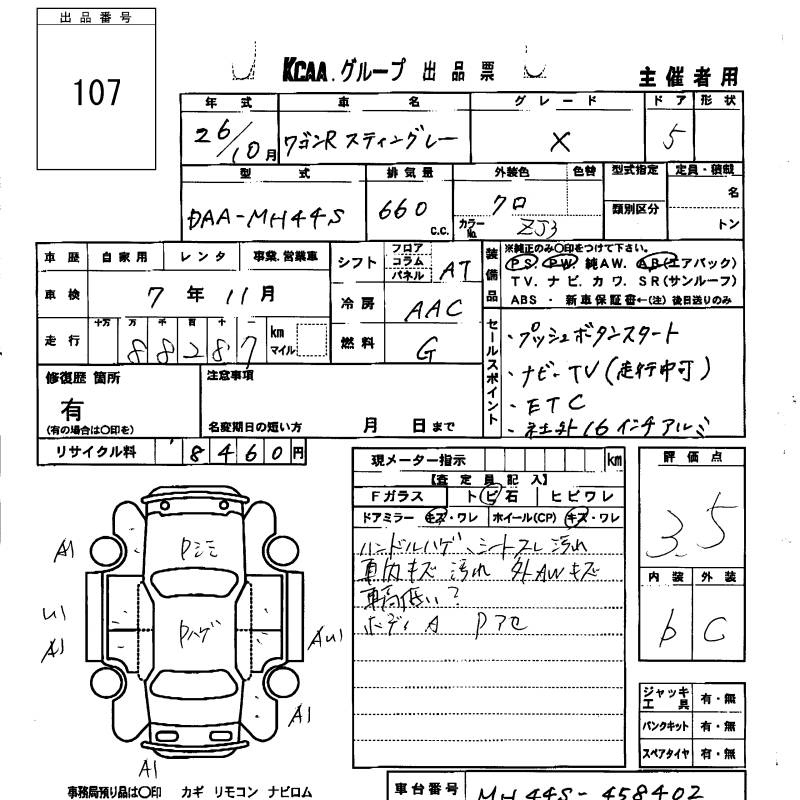 出品番号
107
KCAA.グループ 出品票
主催者用
年式 車名 グレード ドア 形状
26/10月 ワゴンR スティングレー X 5
型式 排気量 外装色 色替 型式指定 定員・積載
DAA-MH44S 660 c.c. クロ カラーNo. ZJ3 類別区分 名 トン
車歴 自家用 レンタ 事業.営業車
車検 7年11月
走行 十万 万 千 百 十 一 88287 km マイル
シフト フロア コラム パネル AT
冷房 AAC
燃料 G
装備品
※純正のみ〇印をつけて下さい。
PS. PW. 純AW. AB(エアバック)
TV. ナビ. カワ. SR(サンルーフ)
ABS・新車保証書←(注)後日送りのみ
セールスポイント
・プッシュボタンスタート
・ナビ・TV(走行中可)
・ETC
・社外16インチアルミ
修復歴 箇所
有
(有の場合は〇印を)
注意事項
名変期日の短い方 月 日まで
リサイクル料 8460円
現メーター指示 km
【査定員記入】
Fガラス トビ石 ヒビワレ
ドアミラー キズ・ワレ ホイール(CP) キズ・ワレ
ハンドルハゲ、シートスレ汚れ
車内キズ 汚れ 外AWキズ
車高低い?
ボディA Pアセ
評価点
3.5
内装 外装
b C
ジャッキ工具 有・無
パンクキット 有・無
スペアタイヤ 有・無
A1
Pハゲ
U1
A1
AU1
A1
A1
事務局預り品は〇印 カギ リモコン ナビロム
車台番号 MH44S-458402